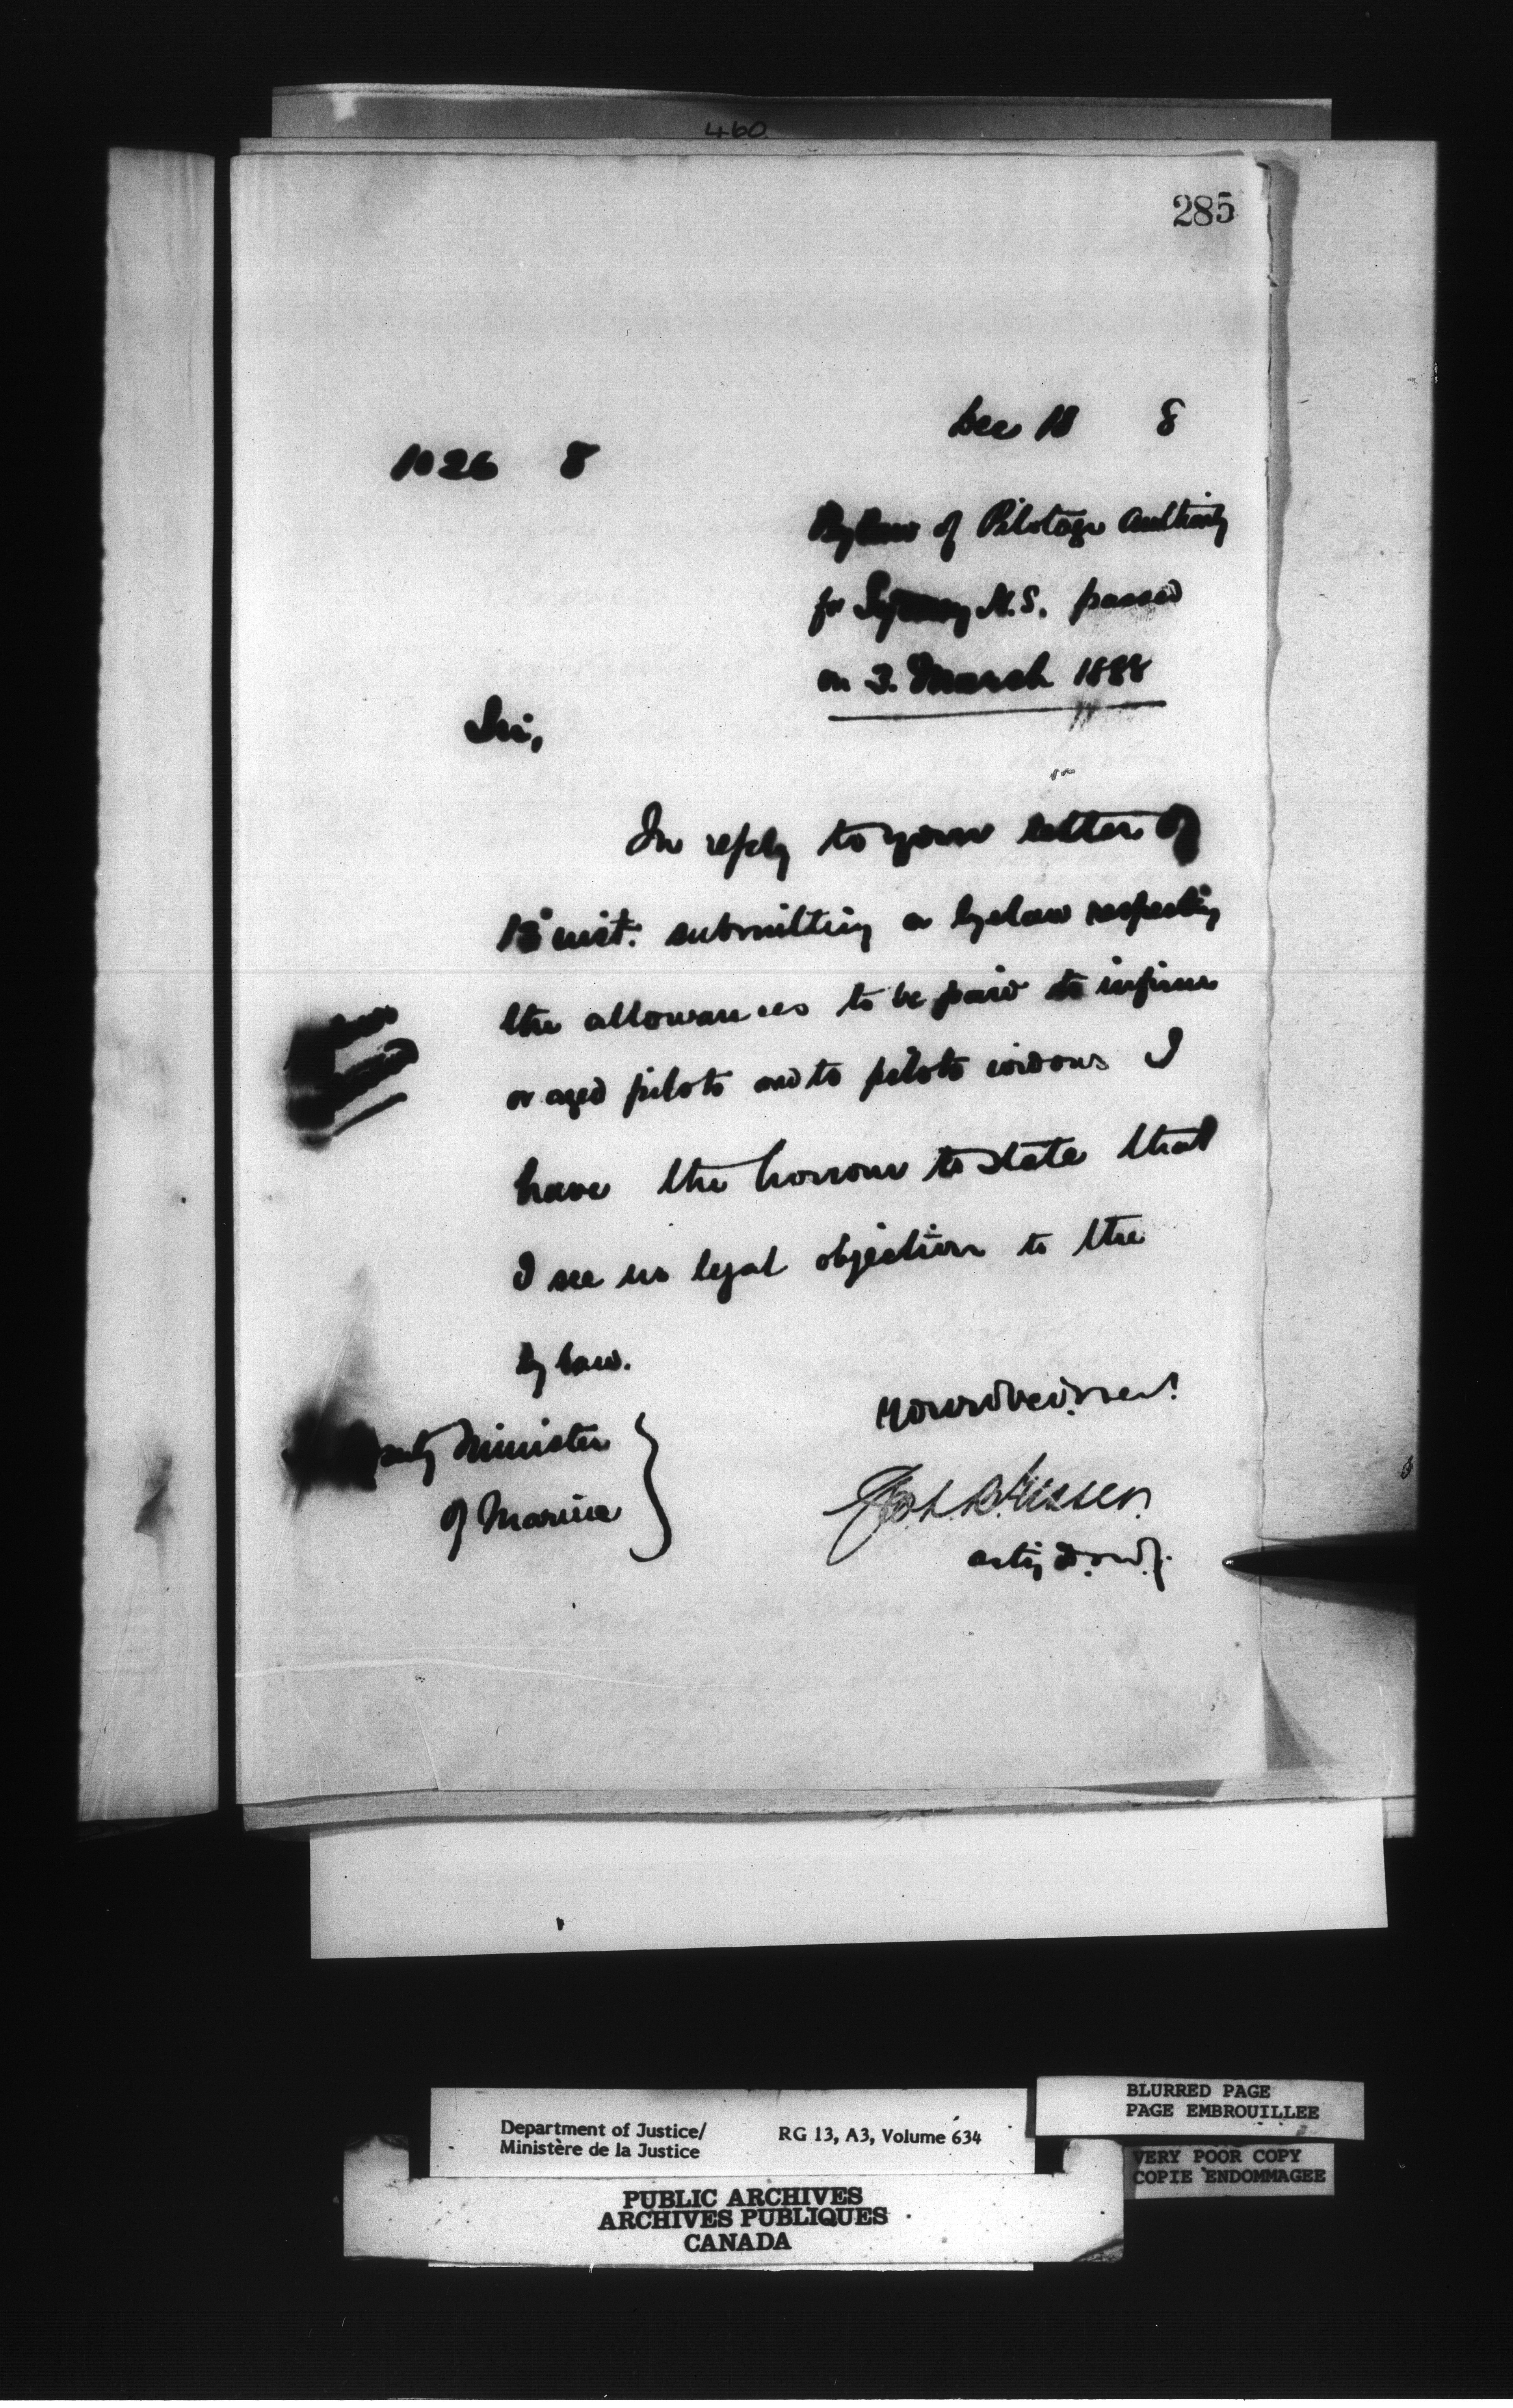 460
285
Dec 18 8
1026 8
Bylaw of Pilotage Authority
for Sydney N.S. passed
on 3. March 1888
Sir,
In reply to your letter of
13 inst. submitting a byelaw respecting
the allowances to be paid to infirm
or aged pilots and to pilots widows I
have the honour to state that
I see no legal objection to the
bylaw.
Deputy Minister
of Marine
acting D.M.J.
Department of Justice/
Ministère de la Justice
RG 13, A3, Volume 634
BLURRED PAGE
PAGE EMBROUILLEE
VERY POOR COPY
COPIE ENDOMMAGEE
PUBLIC ARCHIVES
ARCHIVES PUBLIQUES
CANADA